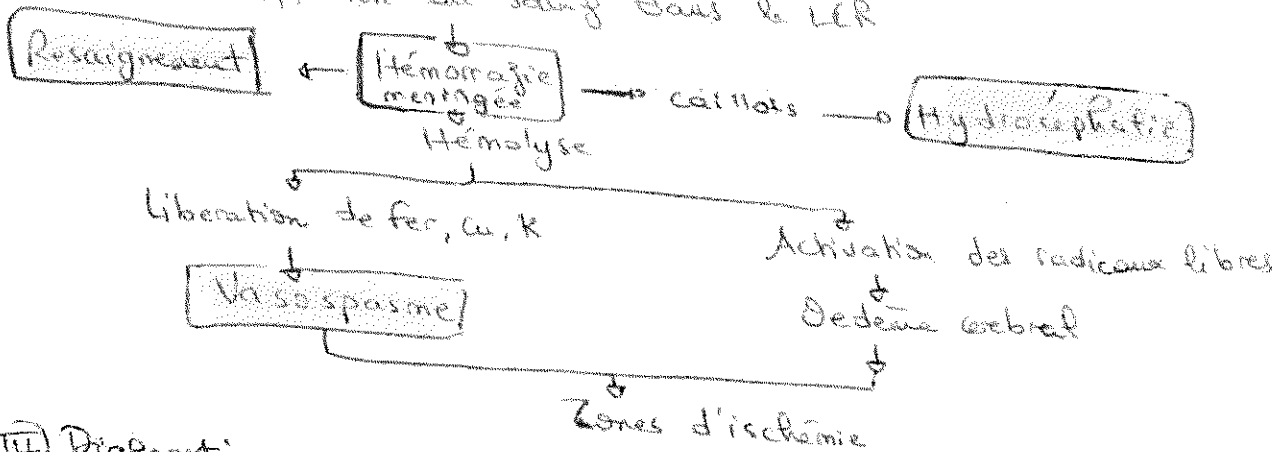 du sang dans le LCR
Resaignement ← Hémorragie méningée → caillots → Hydrocéphalie
Hémolyse
Libération de fer, cu, K
Activation des radicaux libres
Vasospasme
Oedème cerebral
Zones d'ischémie
III